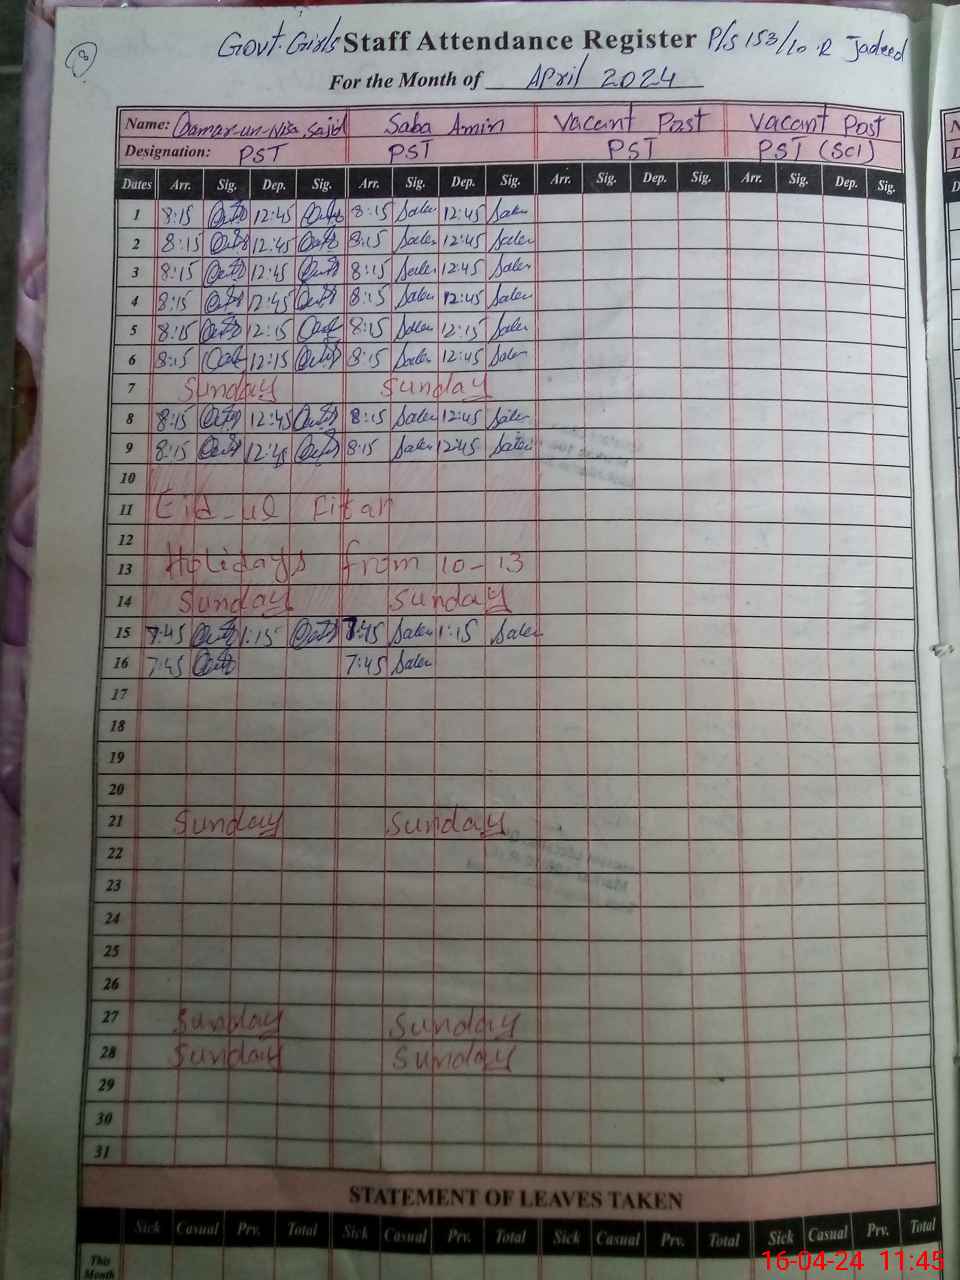 8
Govt. Girls Staff Attendance Register P/S 153/10-R Jadeed
For the Month of April 2024
Name: Qamar-un-Nisa, Sajid Saba Amin Vacant Post Vacant Post
Designation: PST PST PST PST (Sci)
Dates Arr. Sig. Dep. Sig. Arr. Sig. Dep. Sig. Arr. Sig. Dep. Sig. Arr. Sig. Dep. Sig.
1 8:15 12:45 8:15 12:45
2 8:15 12:45 8:15 12:45
3 8:15 12:45 8:15 12:45
4 8:15 12:45 8:15 12:45
5 8:15 12:15 8:15 12:15
6 8:15 12:15 8:15 12:45
7 Sunday Sunday
8 8:15 12:45 8:15 12:45
9 8:15 12:45 8:15 12:45
10
11 Eid-ul Fitar
12
13 Holidays from 10-13
14 Sunday Sunday
15 7:45 1:15 7:45 1:15
16 7:45 7:45
17
18
19
20
21 Sunday Sunday
22
23
24
25
26
27 Sunday Sunday
28 Sunday Sunday
29
30
31
STATEMENT OF LEAVES TAKEN
Sick Casual Prv. Total Sick Casual Prv. Total Sick Casual Prv. Total Sick Casual Prv. Total
This
Month
16-04-24 11:45